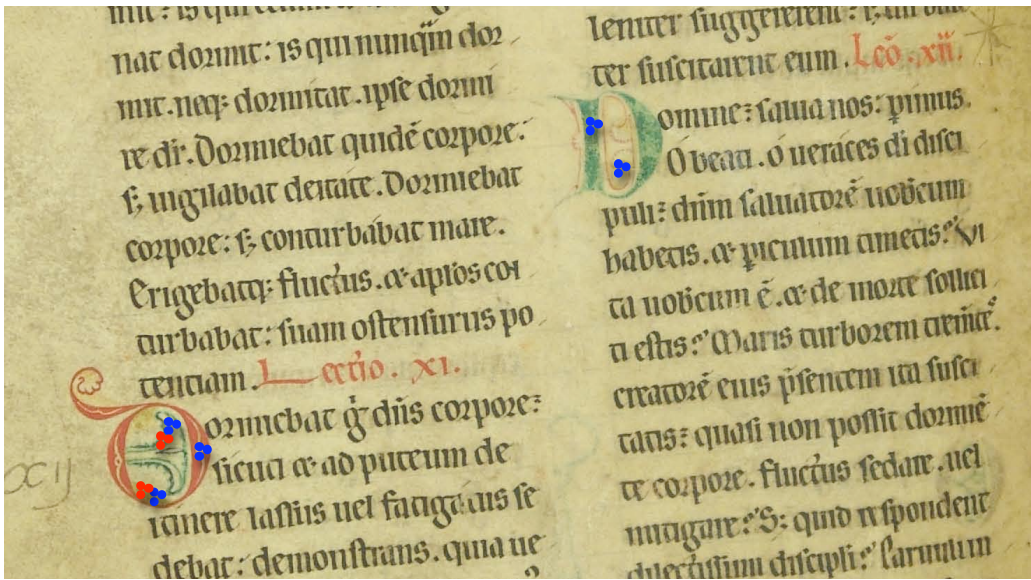 nat dormit: is qui nunq̄m dor
mit. neq; dormitat. ipse dormi
re dr̄. Dormiebat quidē corpore:
s; uigilabat deitate. Dormiebat
corpore: s; conturbabat mare.
Erigebatq; fluctus. & aptos con
turbabat: suam ostensurus po
tentiam. Lectio. xi.
Dormiebat ḡ dn̄s corpore:
sicuti & ad puteum de
itinere lassus uel fatigatus se
debat: demonstrans. quia ue
XIJ
leniter suggererent:
ter suscitarent eum. Lcō. xii.
Domine: salua nos: p̄imus.
O beati. o ueraces di disci
puli: dn̄m saluatorē uobcum
habetis. & ꝑiculum timetis? Vi
ta uobcum ē. & de morte sollici
ti estis? Maris turborem
creatorē eius p̄sentem ita susci
tatis: quasi non possit dormiē
te corpore. fluctus sedare. uel
mitigare? S; quid respondent
dilectissimi discipli? Paruuli